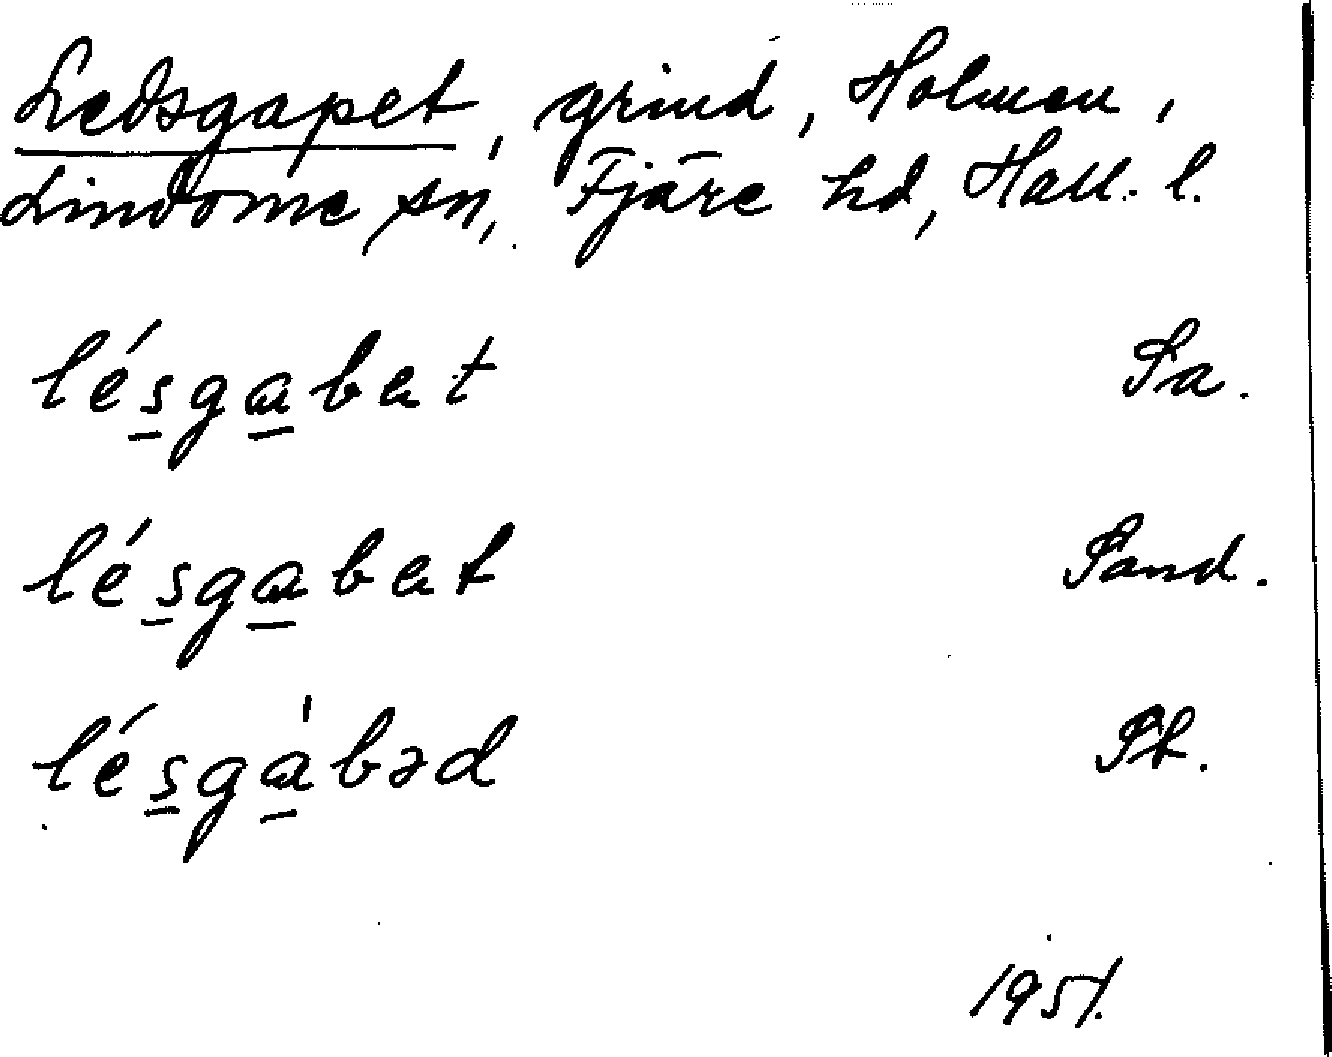 Ledsgapet, grind, Holmen,
Lindome sn, Fjäre hd, Hall. l.
lésgabat Sa.
lésgabat Sand.
lésgàbəd Pt.
1951.